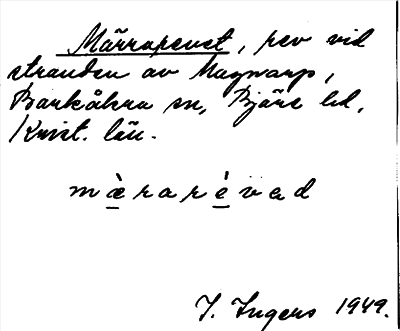 Märrarevet, rev vid
stranden av Magnarp,
Barkåkra sn, Bjäre hd,
Krist. län.
mæ̀rarévad
I. Ingers 1949.